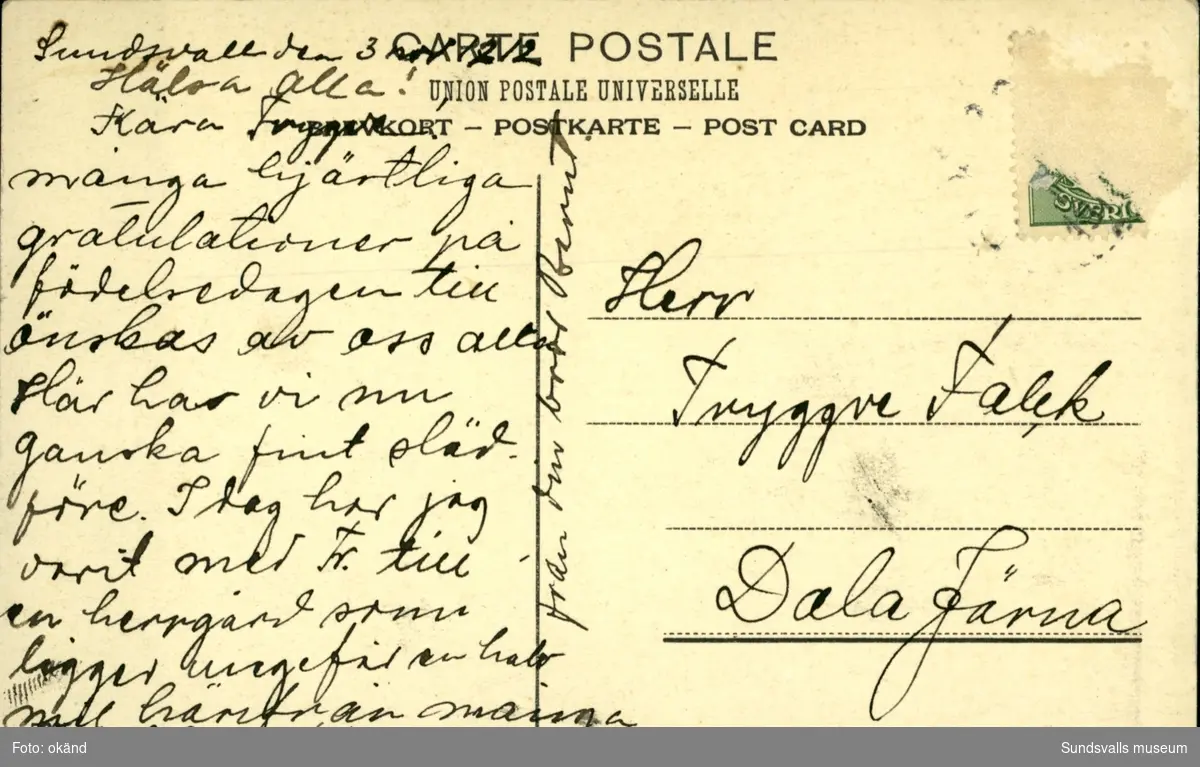 CARTE POSTALE
UNION POSTALE UNIVERSELLE
BREVKORT – POSTKARTE – POST CARD
Sundsvall den 3
Hälsa alla!
Kära Tryggve!
många hjärtliga
gratulationer på
födelsedagen till
önskas av oss alla
Här har vi nu
ganska fint släd-
före. I dag har jag
varit med Fr. till
en herrgård som
ligger ungefär en halv
mil härifrån många
från din bror Bernt
SVERI
Herr
Tryggve Falck
Dala Järna
Foto: okänd
Sundsvalls museum